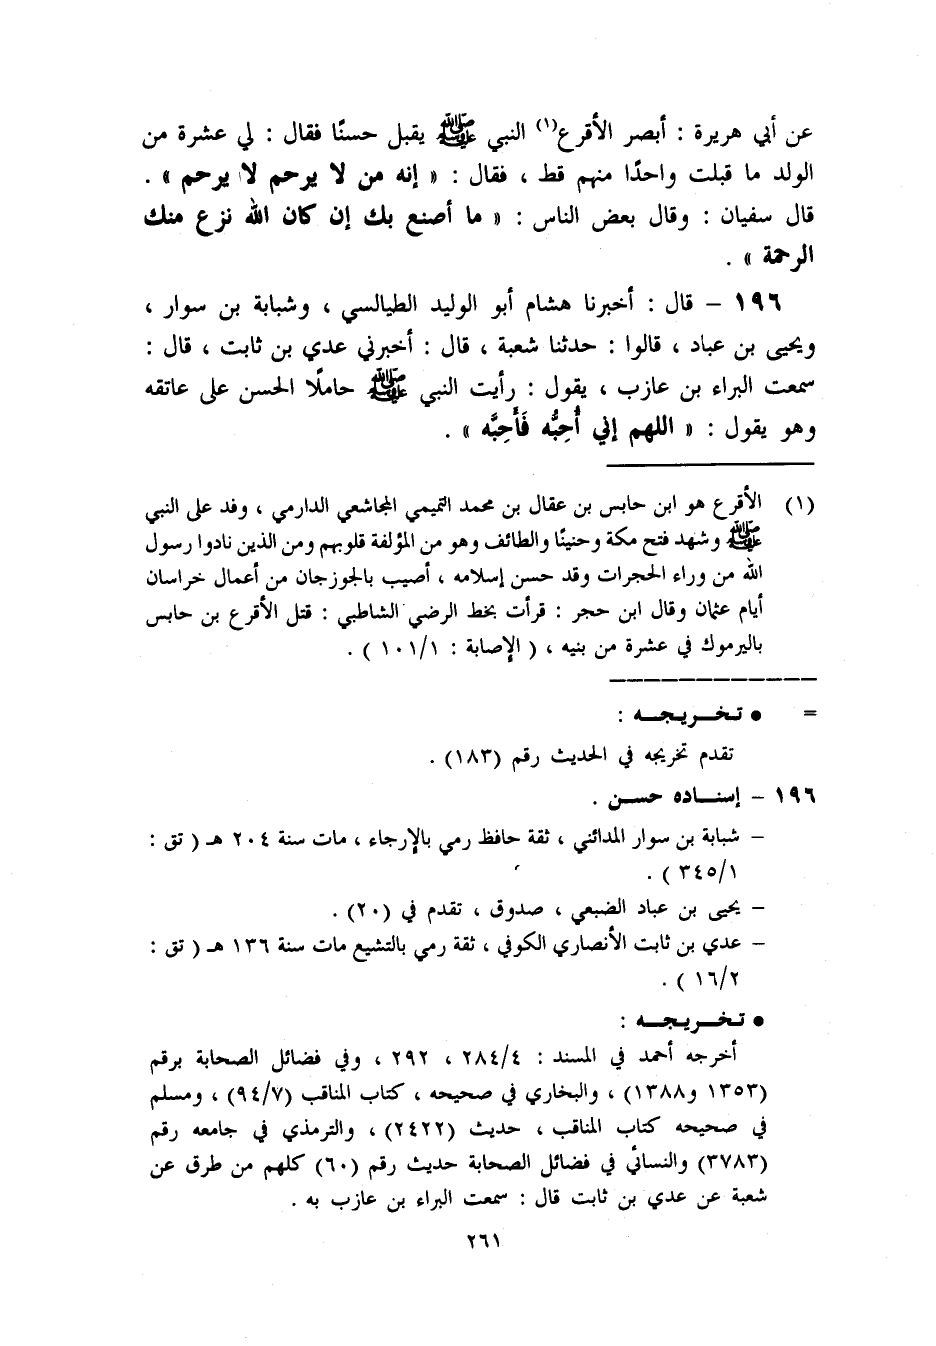 عن أبي هريرة : أبصر الأقرع(١) النبي ﷺ يقبل حسنًا فقال : لي عشرة من
الولد ما قبلت واحدًا منهم قط ، فقال : « إنه من لا يرحم لا يرحم » .
قال سفيان : وقال بعض الناس : « ما أصنع بك إن كان الله نزع منك
الرحمة » .
١٩٦ – قال : أخبرنا هشام أبو الوليد الطيالسي ، وشبابة بن سوار ،
ويحيى بن عباد ، قالوا : حدثنا شعبة ، قال : أخبرني عدي بن ثابت ، قال :
سمعت البراء بن عازب ، يقول : رأيت النبي ﷺ حاملًا الحسن على عاتقه
وهو يقول : « اللهم إني أُحِبُّه فَأَحِبَّه » .
(١) الأقرع هو ابن حابس بن عقال بن محمد التميمي المجاشعي الدارمي ، وفد على النبي
ﷺ وشهد فتح مكة وحنينًا والطائف وهو من المؤلفة قلوبهم ومن الذين نادوا رسول
الله من وراء الحجرات وقد حسن إسلامه ، أصيب بالجوزجان من أعمال خراسان
أيام عثمان وقال ابن حجر : قرأت بخط الرضي الشاطبي : قتل الأقرع بن حابس
باليرموك في عشرة من بنيه ، ( الإصابة : ١٠١/١ ) .
= • تـخـــريـجـــه :
تقدم تخريجه في الحديث رقم (١٨٣) .
١٩٦ – إسنـــاده حســـن .
– شبابة بن سوار المدائني ، ثقة حافظ رمي بالإرجاء ، مات سنة ٢٠٤ هـ ( تق :
٣٤٥/١ ) .
– يحيى بن عباد الضبعي ، صدوق ، تقدم في (٢٠) .
– عدي بن ثابت الأنصاري الكوفي ، ثقة رمي بالتشيع مات سنة ١٣٦ هـ ( تق :
١٦/٢ ) .
• تـخـــريـجـــه :
أخرجه أحمد في المسند : ٢٨٤/٤ ، ٢٩٢ ، وفي فضائل الصحابة برقم
(١٣٥٣ و١٣٨٨) ، والبخاري في صحيحه ، كتاب المناقب (٩٤/٧) ، ومسلم
في صحيحه كتاب المناقب ، حديث (٢٤٢٢) ، والترمذي في جامعه رقم
(٣٧٨٣) والنسائي في فضائل الصحابة حديث رقم (٦٠) كلهم من طرق عن
شعبة عن عدي بن ثابت قال : سمعت البراء بن عازب به .
٢٦١